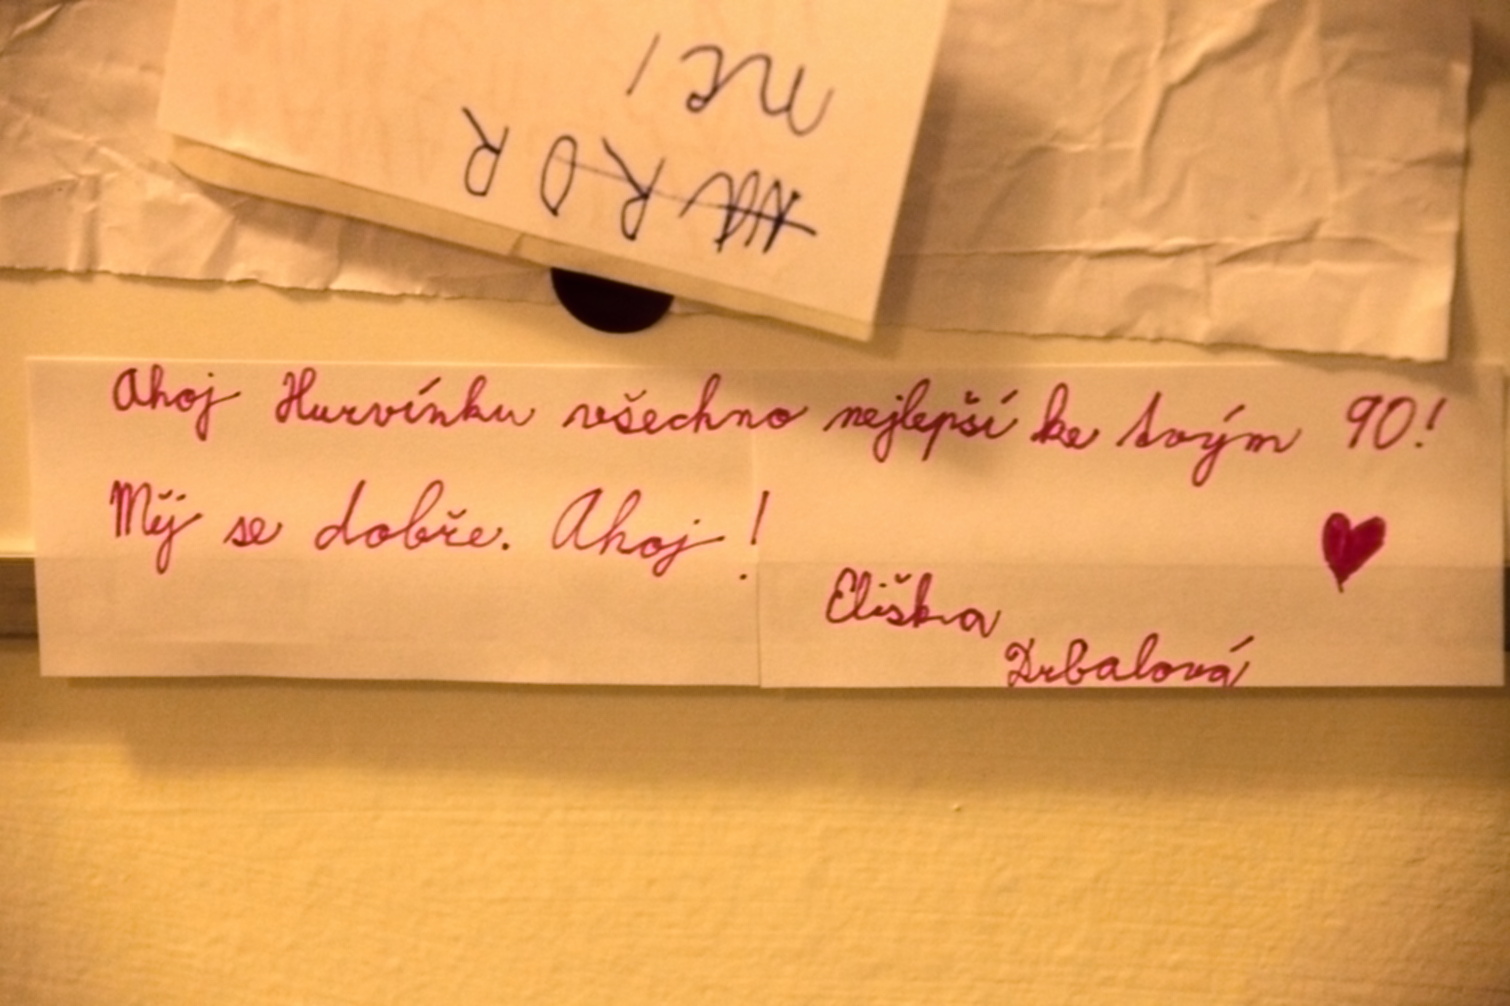 Ahoj Hurvínku všechno nejlepší ke tvým 90!
Měj se dobře. Ahoj!
Eliška
Drbalová